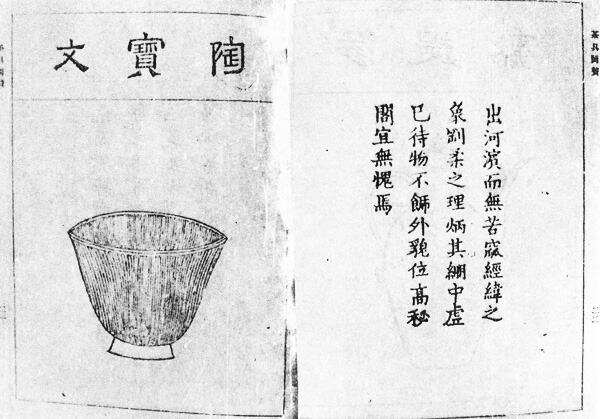 茶具圖贊
出河濱而無苦窳經緯之
象剛柔之理炳其綳中虛
已待物不飾外貌位高秘
閣宜無愧焉
陶寶文